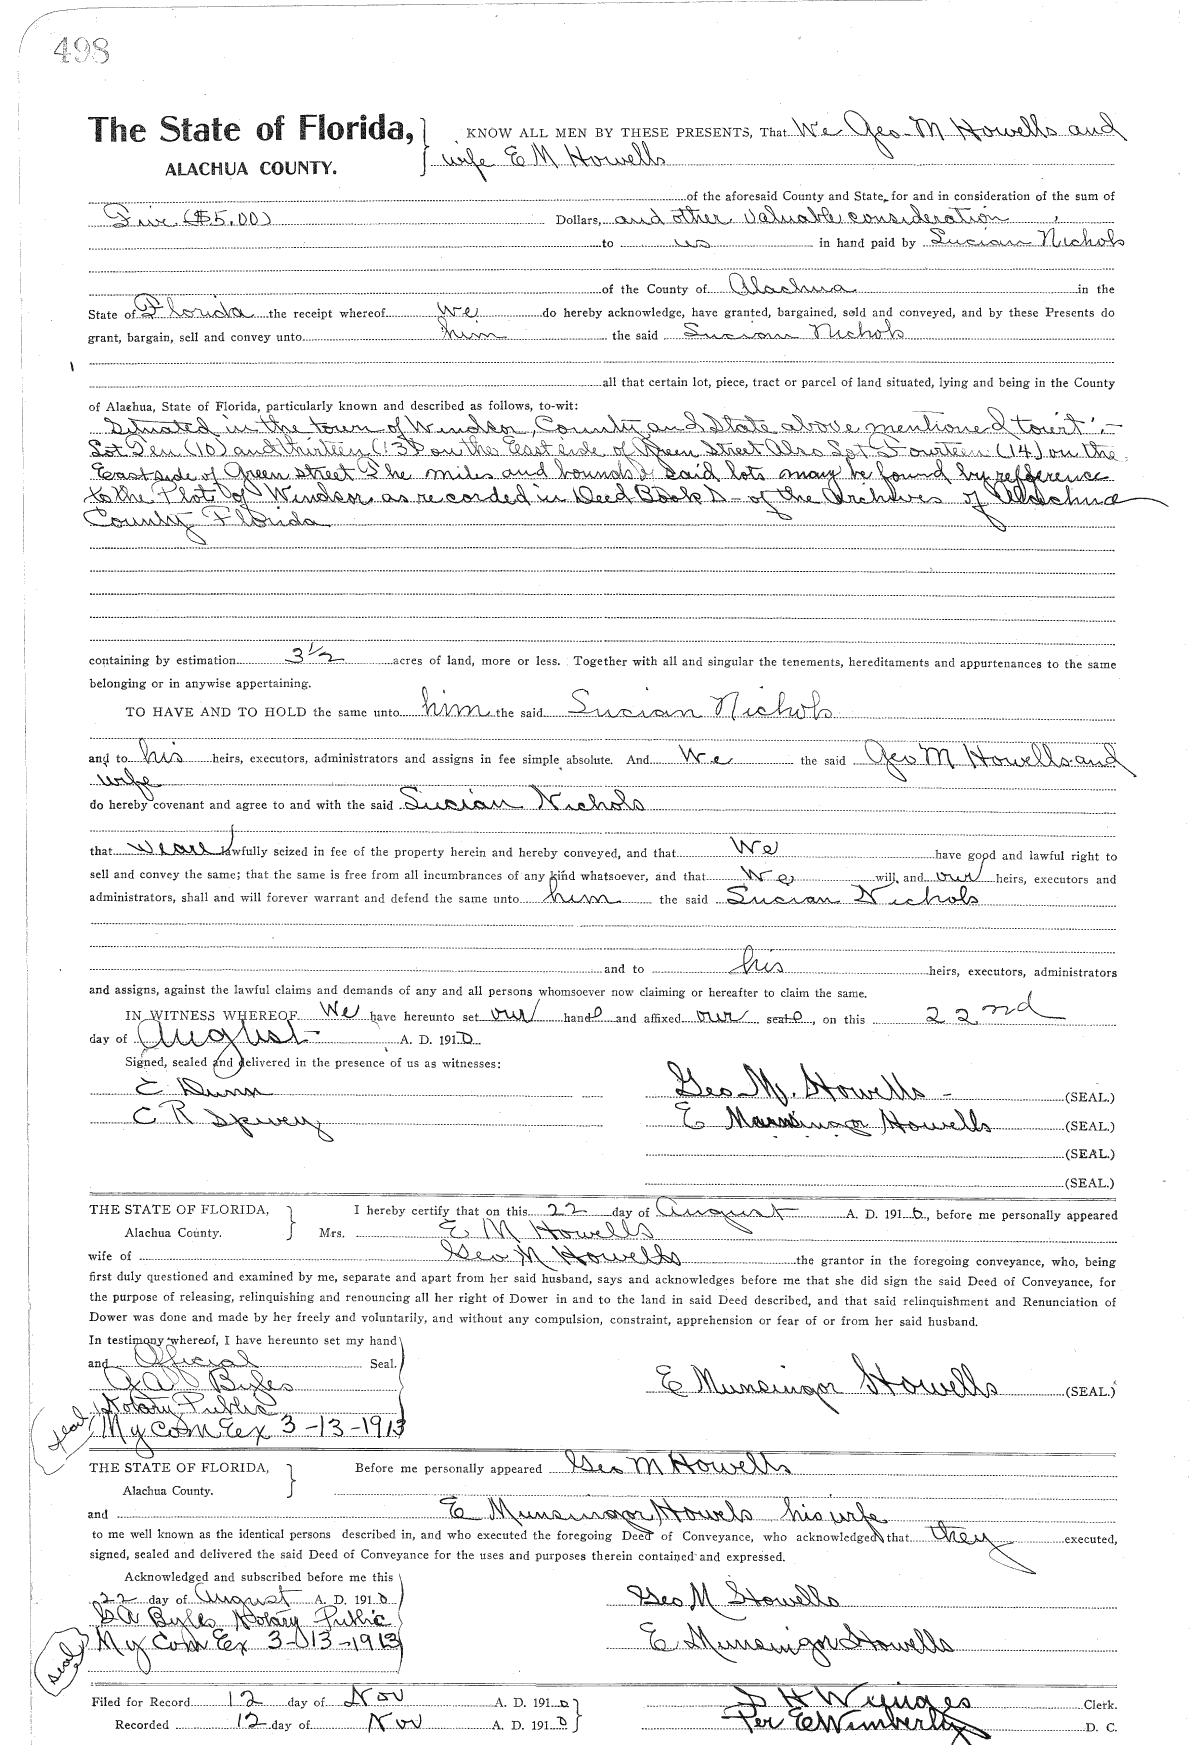 498
The State of Florida, ALACHUA COUNTY. } KNOW ALL MEN BY THESE PRESENTS, That We Geo. M Howells and
wife E M Howells
of the aforesaid County and State, for and in consideration of the sum of
Five ($5.00) Dollars, and other valuable consideration
to us in hand paid by Lucian Nichols
of the County of Alachua in the
State of Florida the receipt whereof We do hereby acknowledge, have granted, bargained, sold and conveyed, and by these Presents do
grant, bargain, sell and convey unto him the said Lucian Nichols
all that certain lot, piece, tract or parcel of land situated, lying and being in the County
of Alachua, State of Florida, particularly known and described as follows, to-wit:
Situated in the town of Windsor, County and State above mentioned towit,-
Lot Ten (10) and thirteen (13) on the East side of Green Street Also Lot Fourteen (14) on the
East side of Green street The miles and bounds of said lots may be found by refference
to the Plot of Windsor as recorded in Deed Book D - of the Archives of Alachua
County Florida
containing by estimation 3 1/2 acres of land, more or less. Together with all and singular the tenements, hereditaments and appurtenances to the same
belonging or in anywise appertaining.
TO HAVE AND TO HOLD the same unto him the said Lucian Nichols
and to his heirs, executors, administrators and assigns in fee simple absolute. And We the said Geo M Howells and
wife
do hereby covenant and agree to and with the said Lucian Nichols
that we are lawfully seized in fee of the property herein and hereby conveyed, and that We have good and lawful right to
sell and convey the same; that the same is free from all incumbrances of any kind whatsoever, and that We will, and our heirs, executors and
administrators, shall and will forever warrant and defend the same unto him the said Lucian Nichols
and to his heirs, executors, administrators
and assigns, against the lawful claims and demands of any and all persons whomsoever now claiming or hereafter to claim the same.
IN WITNESS WHEREOF We have hereunto set our hands and affixed our seals, on this 22nd
day of August A. D. 1910
Signed, sealed and delivered in the presence of us as witnesses:
E Dunn Geo. M. Howells - (SEAL.)
C R Spivey E Munsingor Howells (SEAL.)
(SEAL.)
(SEAL.)
THE STATE OF FLORIDA, Alachua County. } I hereby certify that on this 22 day of August A. D. 1910, before me personally appeared
Mrs. E M Howells
wife of Geo M Howells the grantor in the foregoing conveyance, who, being
first duly questioned and examined by me, separate and apart from her said husband, says and acknowledges before me that she did sign the said Deed of Conveyance, for
the purpose of releasing, relinquishing and renouncing all her right of Dower in and to the land in said Deed described, and that said relinquishment and Renunciation of
Dower was done and made by her freely and voluntarily, and without any compulsion, constraint, apprehension or fear of or from her said husband.
In testimony whereof, I have hereunto set my hand
and Official Seal.
Byles E Munsingor Howells (SEAL.)
Notary Public
(seal) My Com Ex 3-13-1913
THE STATE OF FLORIDA, Alachua County. } Before me personally appeared Geo M Howells
and E Munsingor Howels his wife
to me well known as the identical persons described in, and who executed the foregoing Deed of Conveyance, who acknowledged that they executed,
signed, sealed and delivered the said Deed of Conveyance for the uses and purposes therein contained and expressed.
Acknowledged and subscribed before me this
22 day of August A. D. 1910 Geo M Howells
Byles Notary Public
(seal) My Com Ex 3-13-1913 E Munsingor Howells
Filed for Record 12 day of Nov A. D. 1910 } Wienges Clerk.
Recorded 12 day of Nov A. D. 1910 Per E Wimberly D. C.